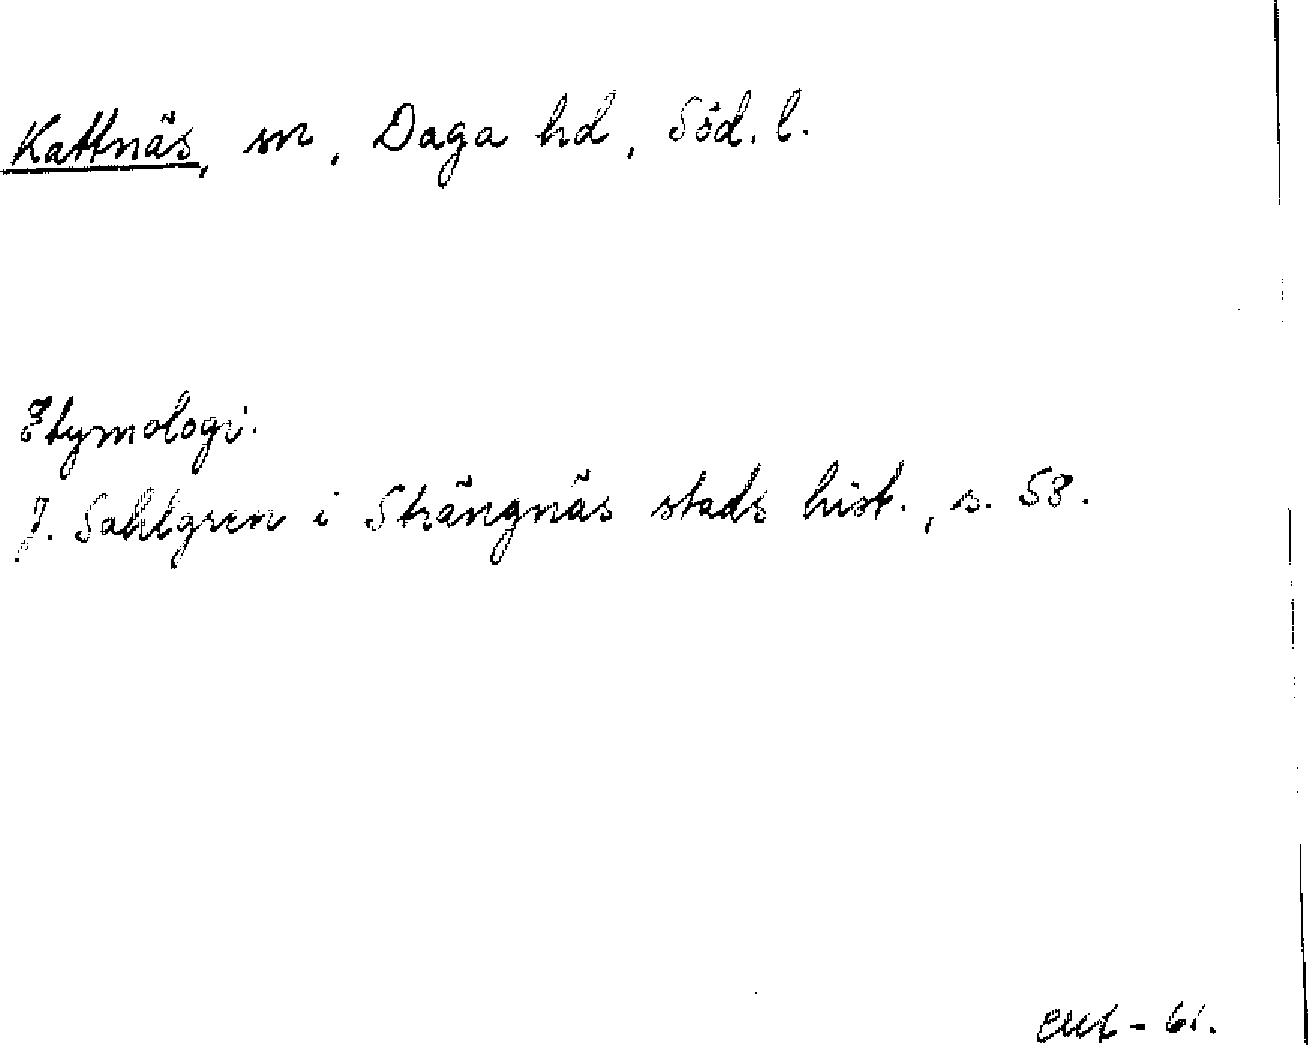 Kattnäs, sn, Daga hd, Söd. l.
Etymologi.
J. Sahlgren i Strängnäs stads hist., s. 58.
- 61.